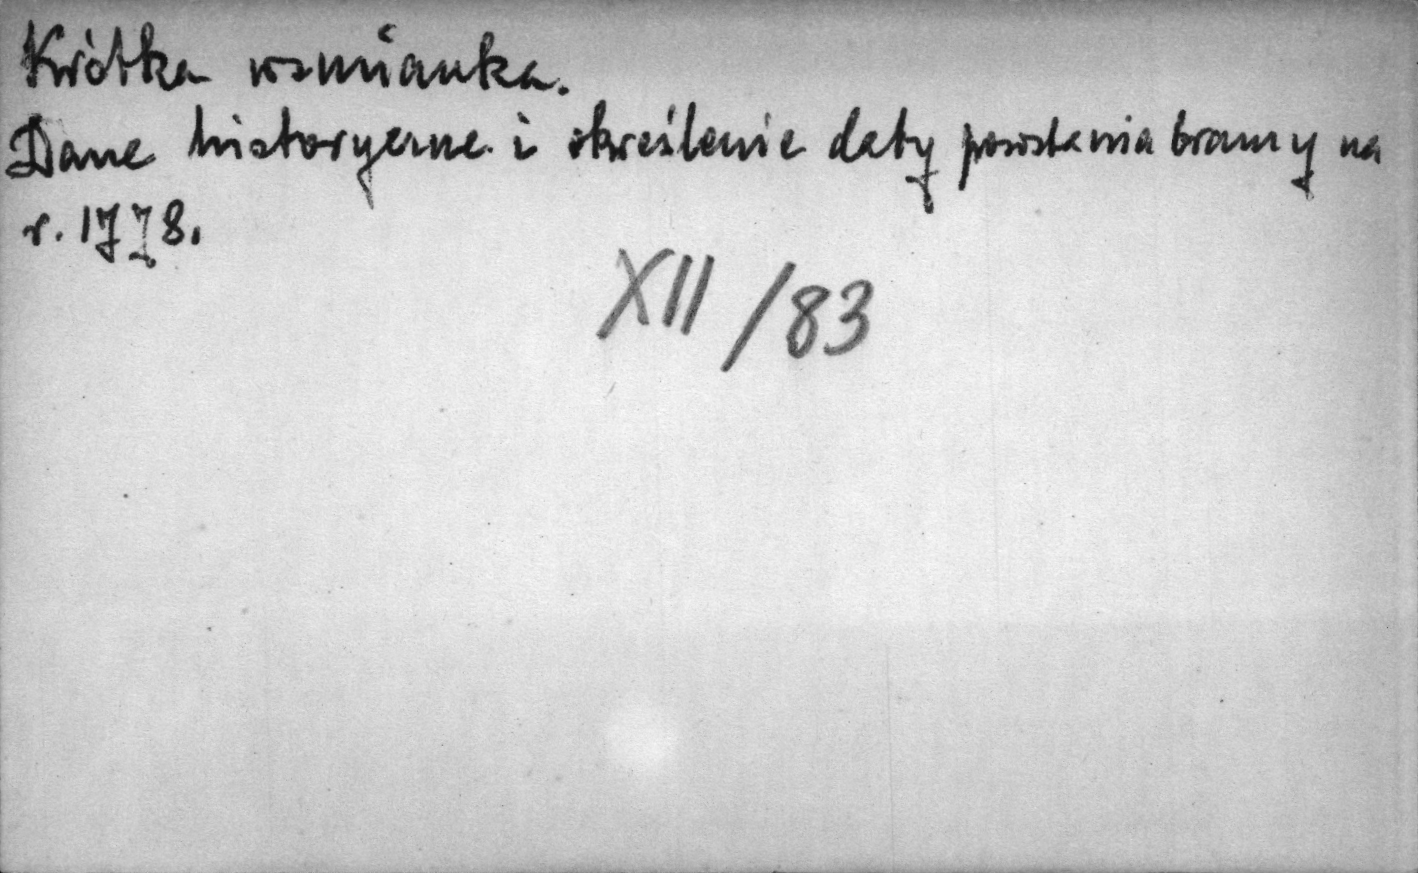 Krótka wzmianka.
Dane historyczne i określenie daty powstania bramy na
r. 1778.
XII/83